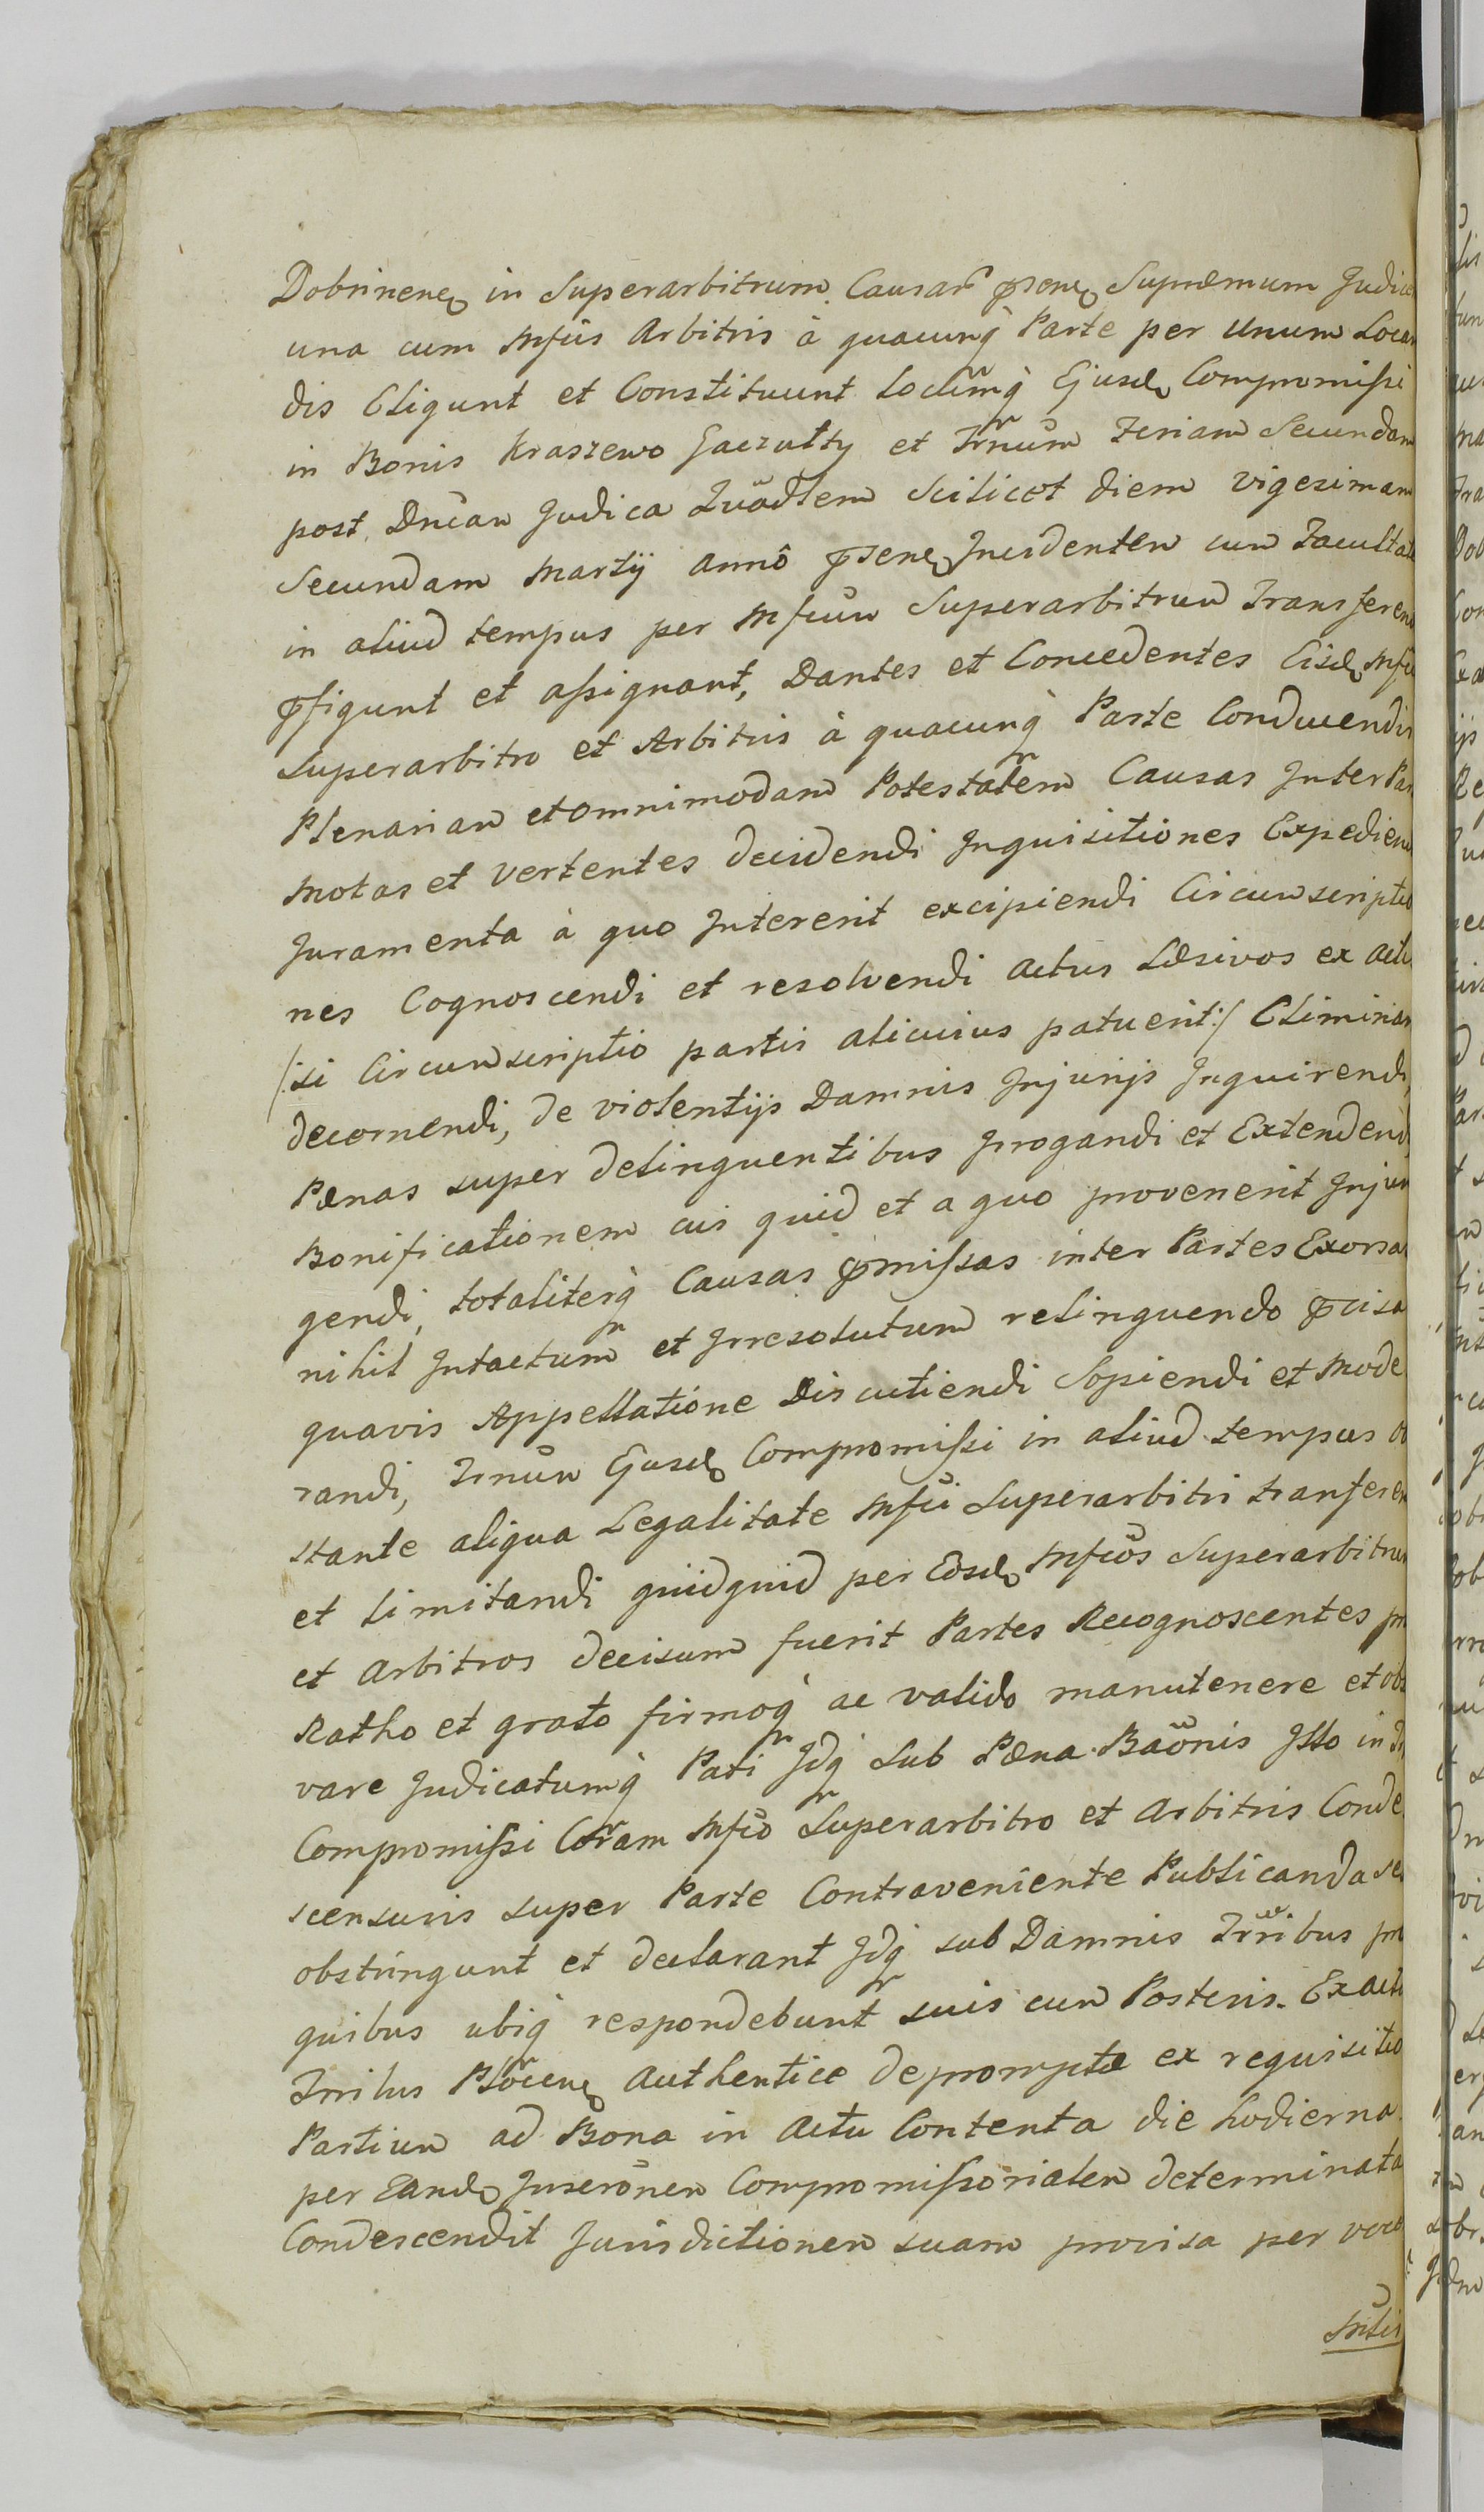 Dobrinenę in Superarbitrum Causar̃ p̃senę Supræmum Judice
una cum Mfiis Arbitris à quacunq̀ Parte per Unum Locan
dis Eligunt et Constituunt Loclūmq̀ Ejusdę Compromissi
in Bonis Kraszewo Gaczułty et Tr̃num Feriam Secundam
post Dn̄cam Judica Quad̃lem Scilicet diem vigesimam
Secundam Martij Annô p̃senę Incidentem cum Facultate
in aliud tempus per Mfcum Superarbitrum Transferend
p̃figunt et assignant, Dantes et Concedentes Eisdę Mfco
Superarbitro et Arbitris à quacunq̀ Parte Conducendis
Plenariam et omnimodam Potestatem Causas Inter Par
motas et vertentes decidendi Inquisitiones Expediend
Juramenta à quo Intererit excipiendi Circumscriptio
nes Cognoscendi et resolvendi Actus Læsivos ex Actis
/:si Circumscriptio partis alicuius patuerit:/ Eliminan
decernendi, de violentijs Damnis Injurijs Inquirendi,
Pænas super delinquentibus Irrogandi et Extendend
Bonificationem cui quid et a quo provenerit Injun
gendi, totaliterq̀ Causas p̃missas inter Partes Exorsas
nihil Intactum et Irresolutum relinquendo p̃cisa
quavis Appellatione Discutiendi Sopiendi et Mode
randi, Tr̃num Ejusdę Compromissi in aliud tempus ob
stante aliqua Legalitate Mfci Superarbitri transferen
et limitandi quidquid per Eosdę Mfcos Superarbitrum
et Arbitros decisum fuerit Partes Recognoscentes pro
Ratho et grato firmoq̀ ac valido manutenere et obs
vare Judicatumq̀ Pati Idq̀ Sub Pæna Baõnis Isto in Tr
Compromissi Coram Mfco Superarbitro et Arbitris Conde
scensuris super Parte Contraveniente Publicanda se
obstringunt et declarant Idq̀ sub Damnis Tr̃ribus pro
quibus ubiq̀ respondebunt suis cum Posteris. Ex actis
Tr̃ribus Płocenę Authentice deprompta ex requisitio
Partium ad Bona in Actu Contenta die hodierna
per Eandę Inserõnem Compromissorialem determinata
Condescendit Jurisdictionem suam provisa per voce
Mstis